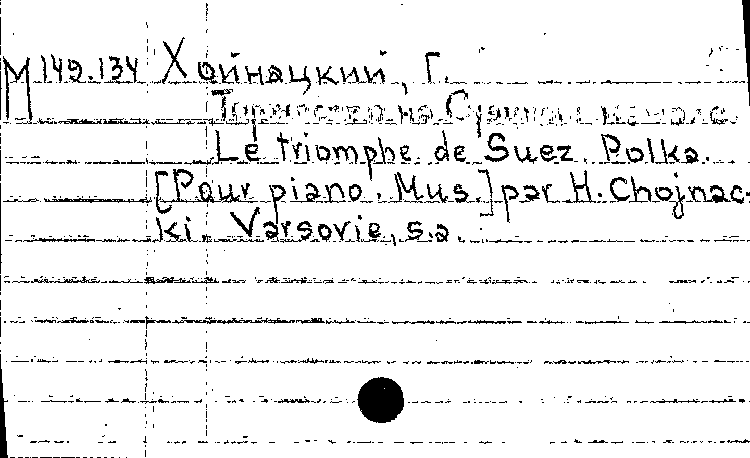 М 149.134 Хойнацкий, Г.
Торжество на Суэцком канале.
Le triomphe de Suez. Polka.
[Pour piano. Mus.] par H. Chojnac-
ki. Varsovie, s.a.